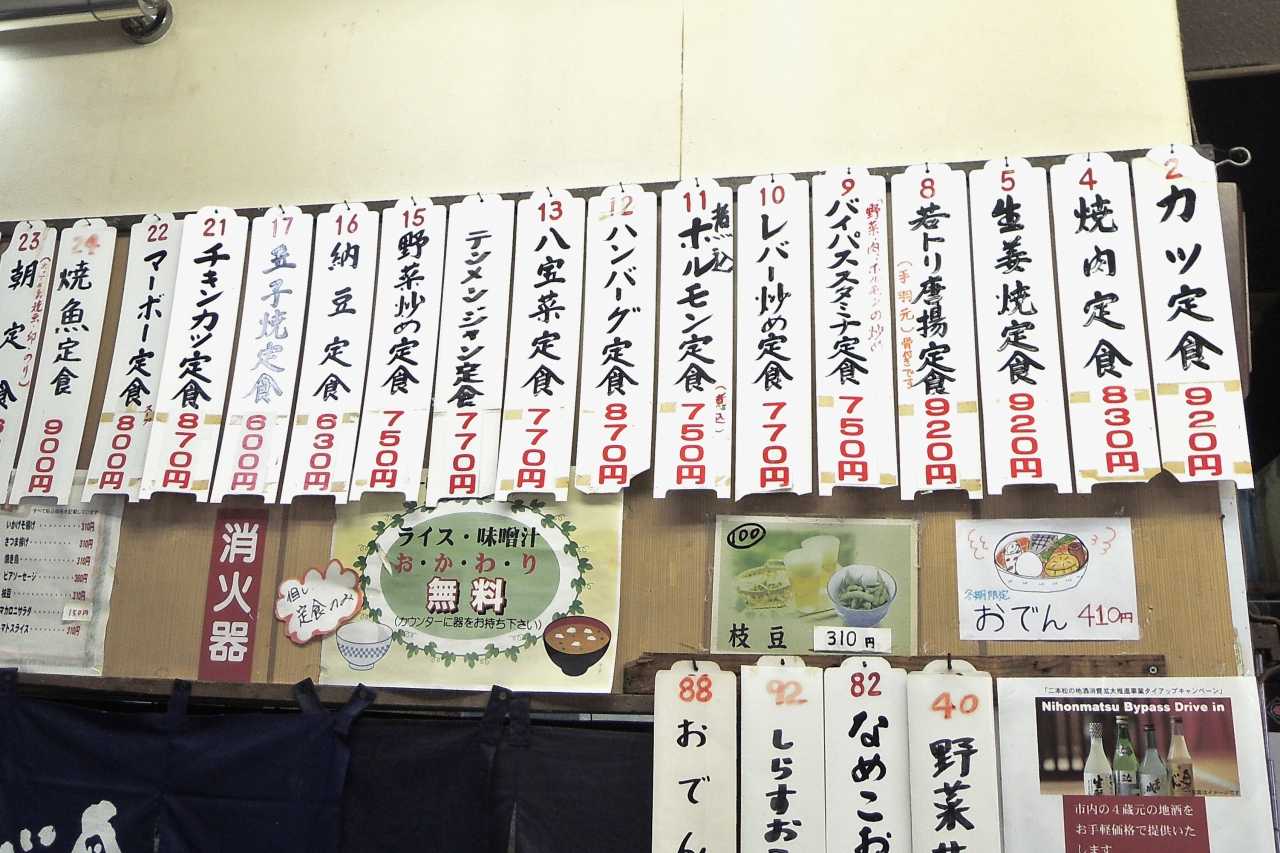 2 カツ定食 920円
4 焼肉定食 830円
5 生姜焼定食 920円
8 若トリ唐揚定食 920円
(手羽元)骨付きです
9 バイパススタミナ定食 750円
野菜・肉・ホルモンの炒め
10 レバー炒め定食 770円
11 煮込ホルモン定食 750円
12 ハンバーグ定食 870円
13 八宝菜定食 770円
テンメンジャン定食 770円
15 野菜炒め定食 750円
16 納豆定食 630円
17 玉子焼定食 600円
21 チキンカツ定食 870円
22 マーボー定食 800円
24 焼魚定食 900円
23 朝定食
いかげそ揚げ 310円
さつま揚げ 310円
焼き鳥 310円
ビアソーセージ
枝豆 310円
マカロニサラダ
マトスライス 310円
消火器
ライス・味噌汁
お・か・わ・り
無料
(カウンターに器をお持ち下さい)
但し
定食のみ
100
枝豆 310円
冬期限定
おでん 410円
40 野菜
82 なめこお
92 しらすお
88 おでん
「二本松の地酒消費拡大推進事業タイアップキャンペーン」
Nihonmatsu Bypass Drive in
市内の4蔵元の地酒を
お手軽価格で提供いた
します